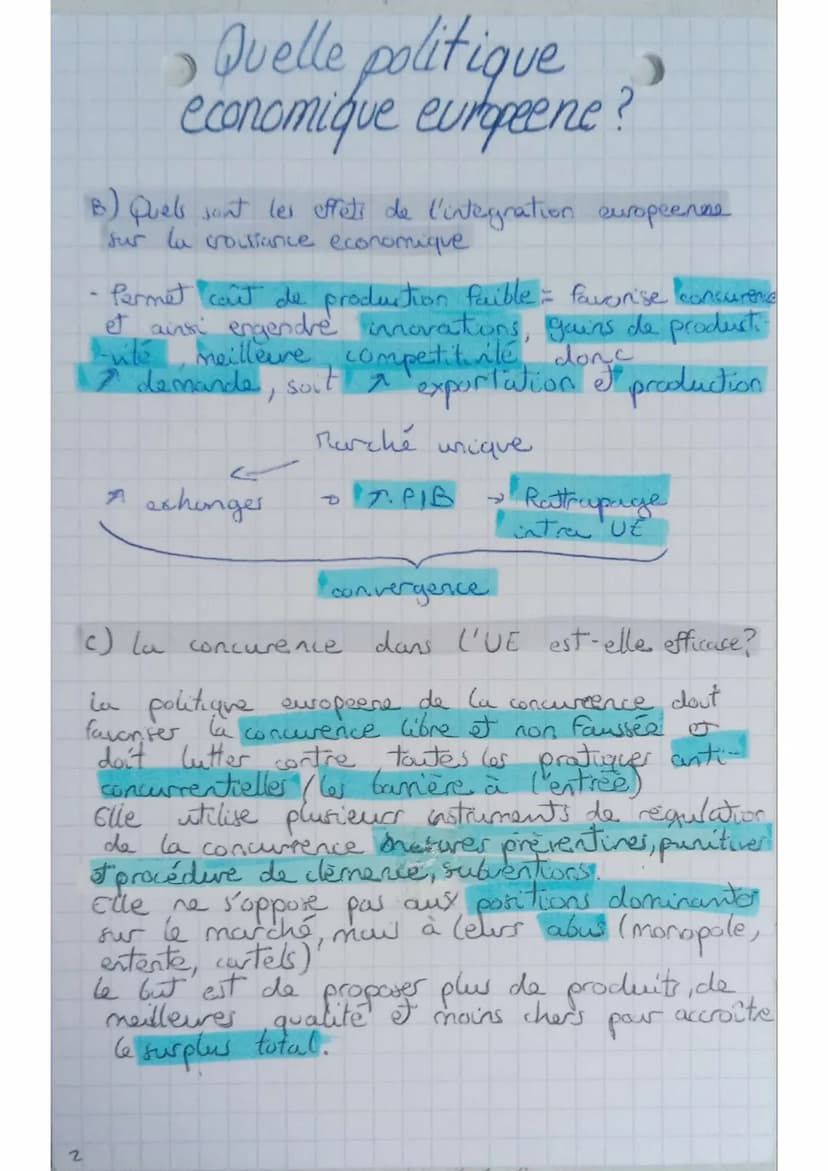 Quelle politique
economique europeene ?
B) Quels sont les effets de l'integration europeenne
sur la croissance economique
- Permet coût de production faible = favorise concurence
et ainsi engendre innovations, gains de producti-
-vité, meilleure competitivité donc
↗ demande, soit ↗ exportation et production
Marché unique
↗ echanges → ↗ PIB → Rattrapage
intra UE
convergence
C) la concurence dans l'UE est-elle efficace?
La politique europeene de la concurence doit
favoriser la concurence libre et non faussée et
doit lutter contre toutes les pratiques anti-
concurrentielles (les barrière à l'entrée)
Elle utilise plusieurs instruments de regulation
de la concurrence mesures préventives, punitives
et procédure de clémence, subventions.
Elle ne s'oppose pas aux positions dominantes
sur le marché, mais à leurs abus (monopole,
entente, cartels)
le but est de proposer plus de produits, de
meilleures qualité et moins chers pour accroître
le surplus total.
2